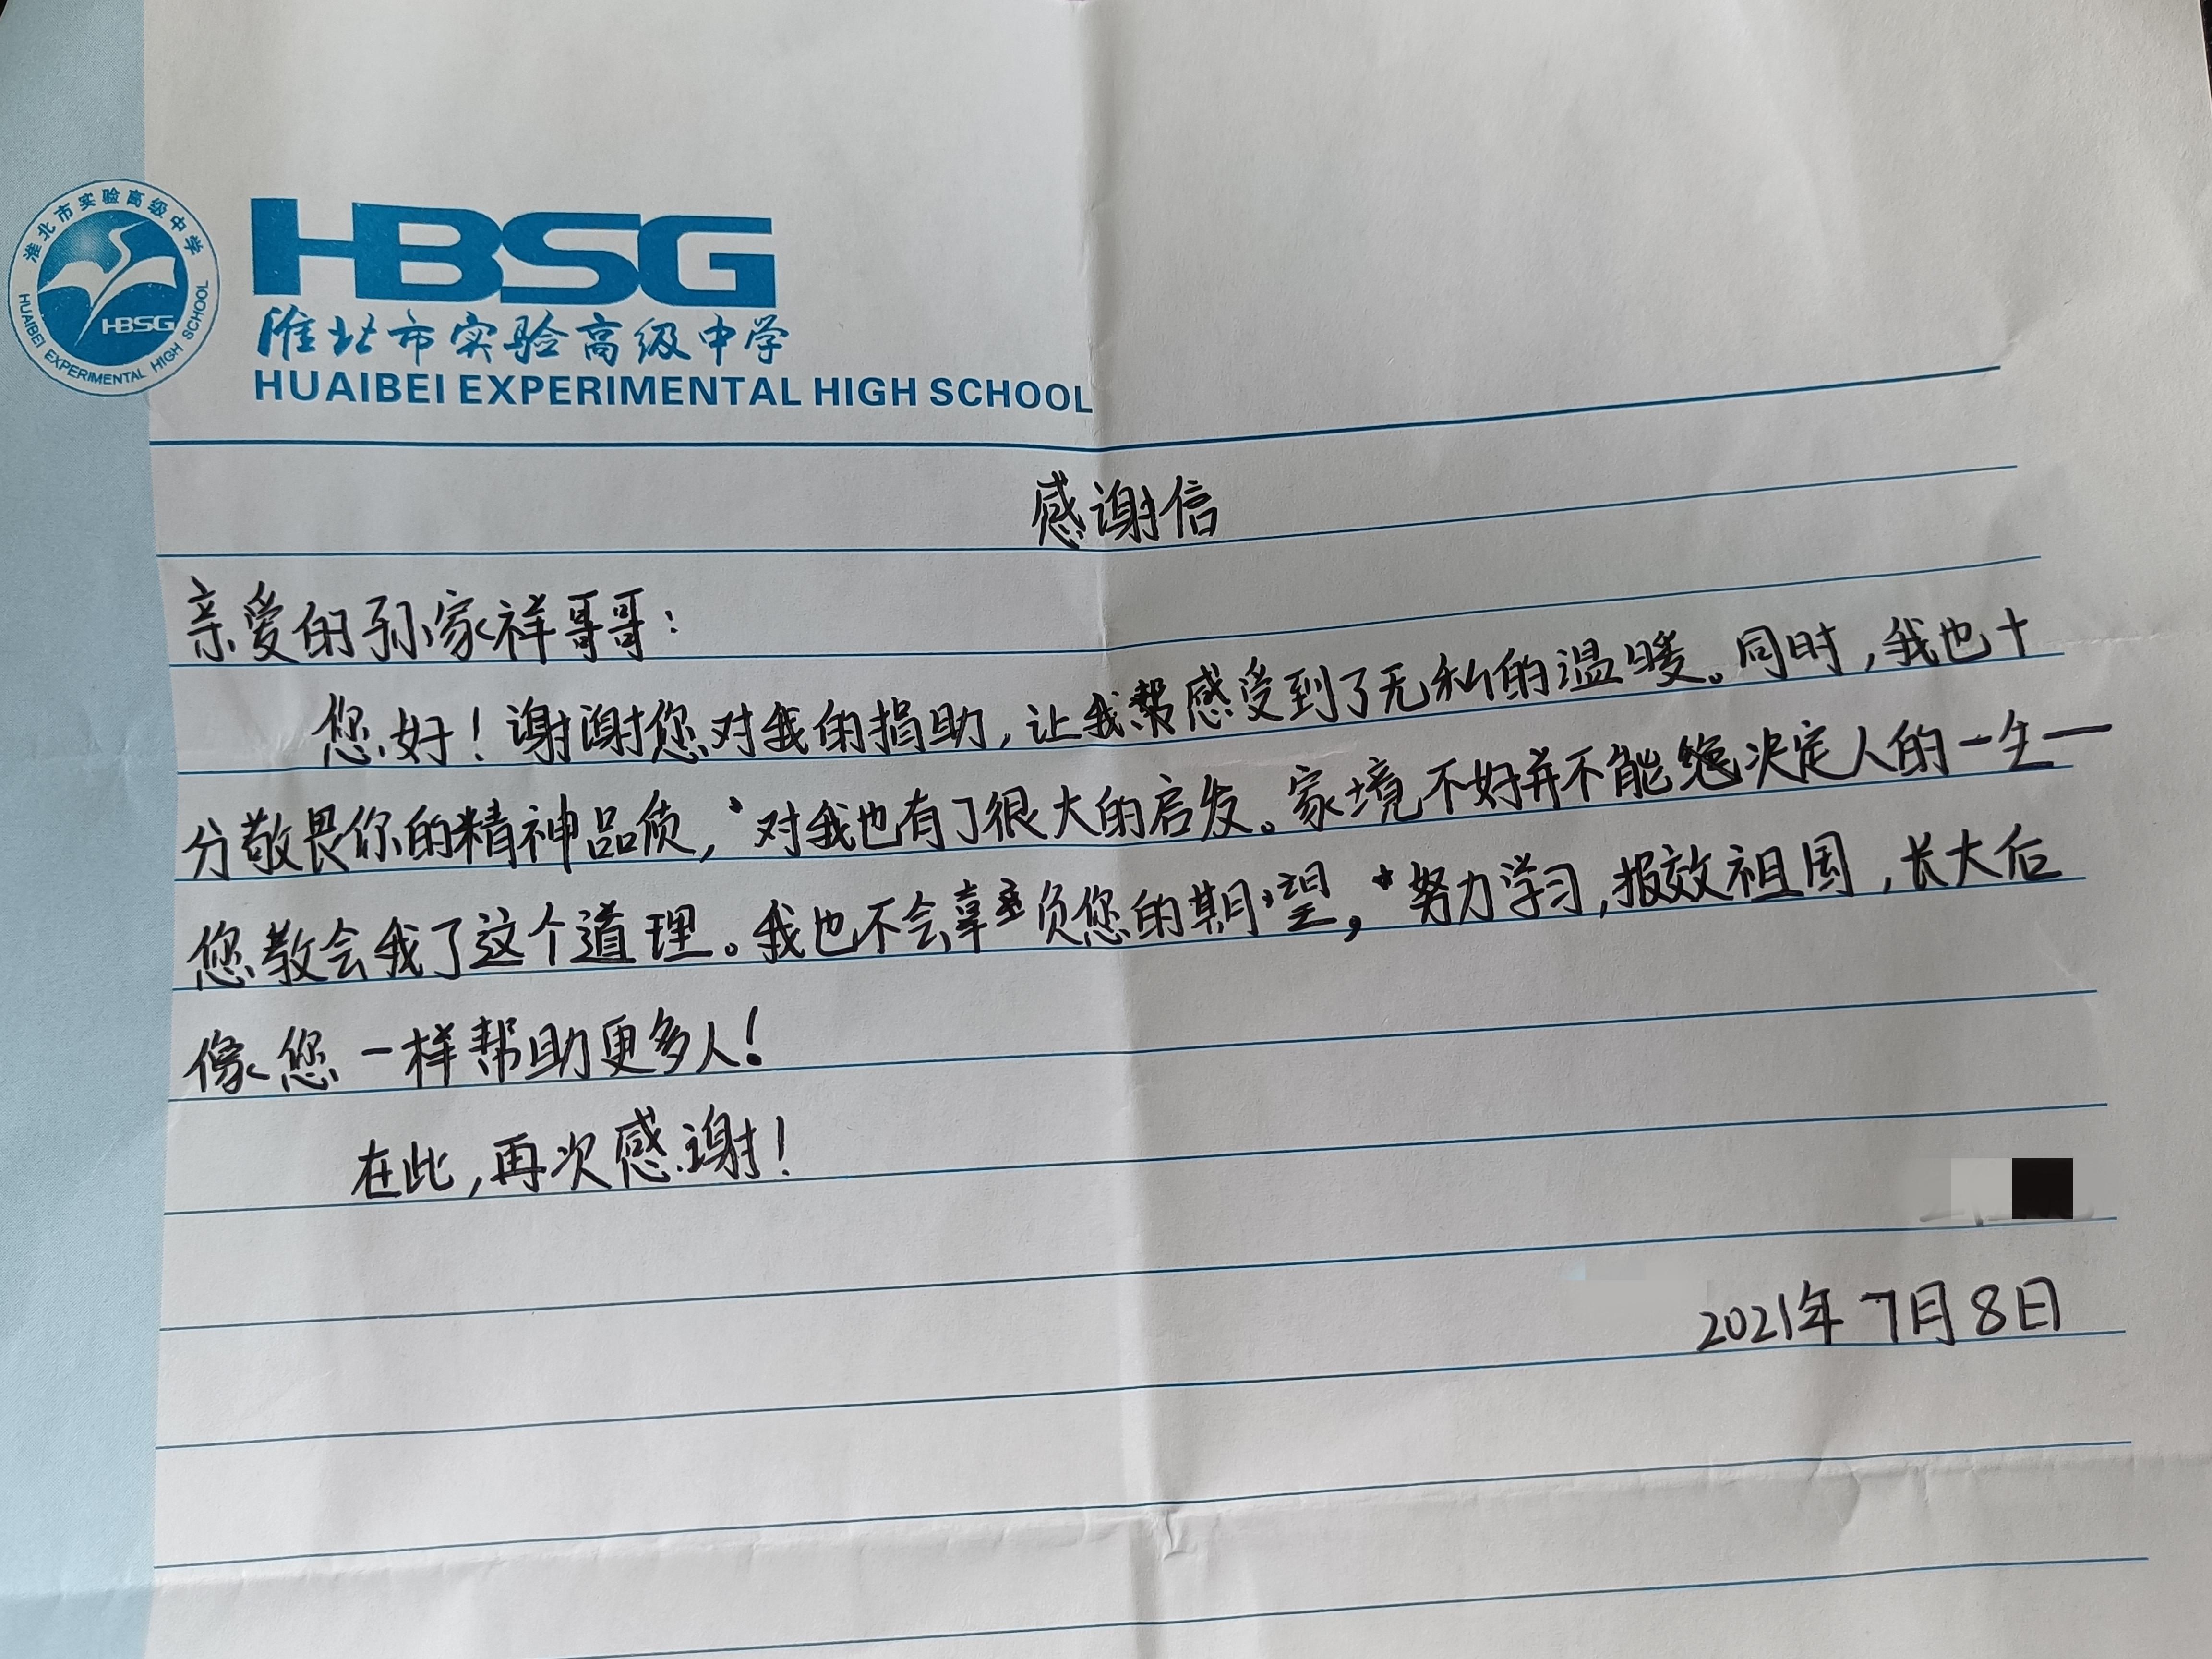 淮北市实验高级中学
HBSG
HUAIBEI EXPERIMENTAL HIGH SCHOOL
HBSG
淮北市实验高级中学
HUAIBEI EXPERIMENTAL HIGH SCHOOL
感谢信
亲爱的孙家祥哥哥：
您好！谢谢您对我的捐助，让我感受到了无私的温暖。同时，我也十
分敬畏你的精神品质，对我也有了很大的启发。家境不好并不能决定人的一生——
您教会我了这个道理。我也不会辜负您的期望，努力学习，报效祖国，长大后
像您一样帮助更多人！
在此，再次感谢！
2021年7月8日